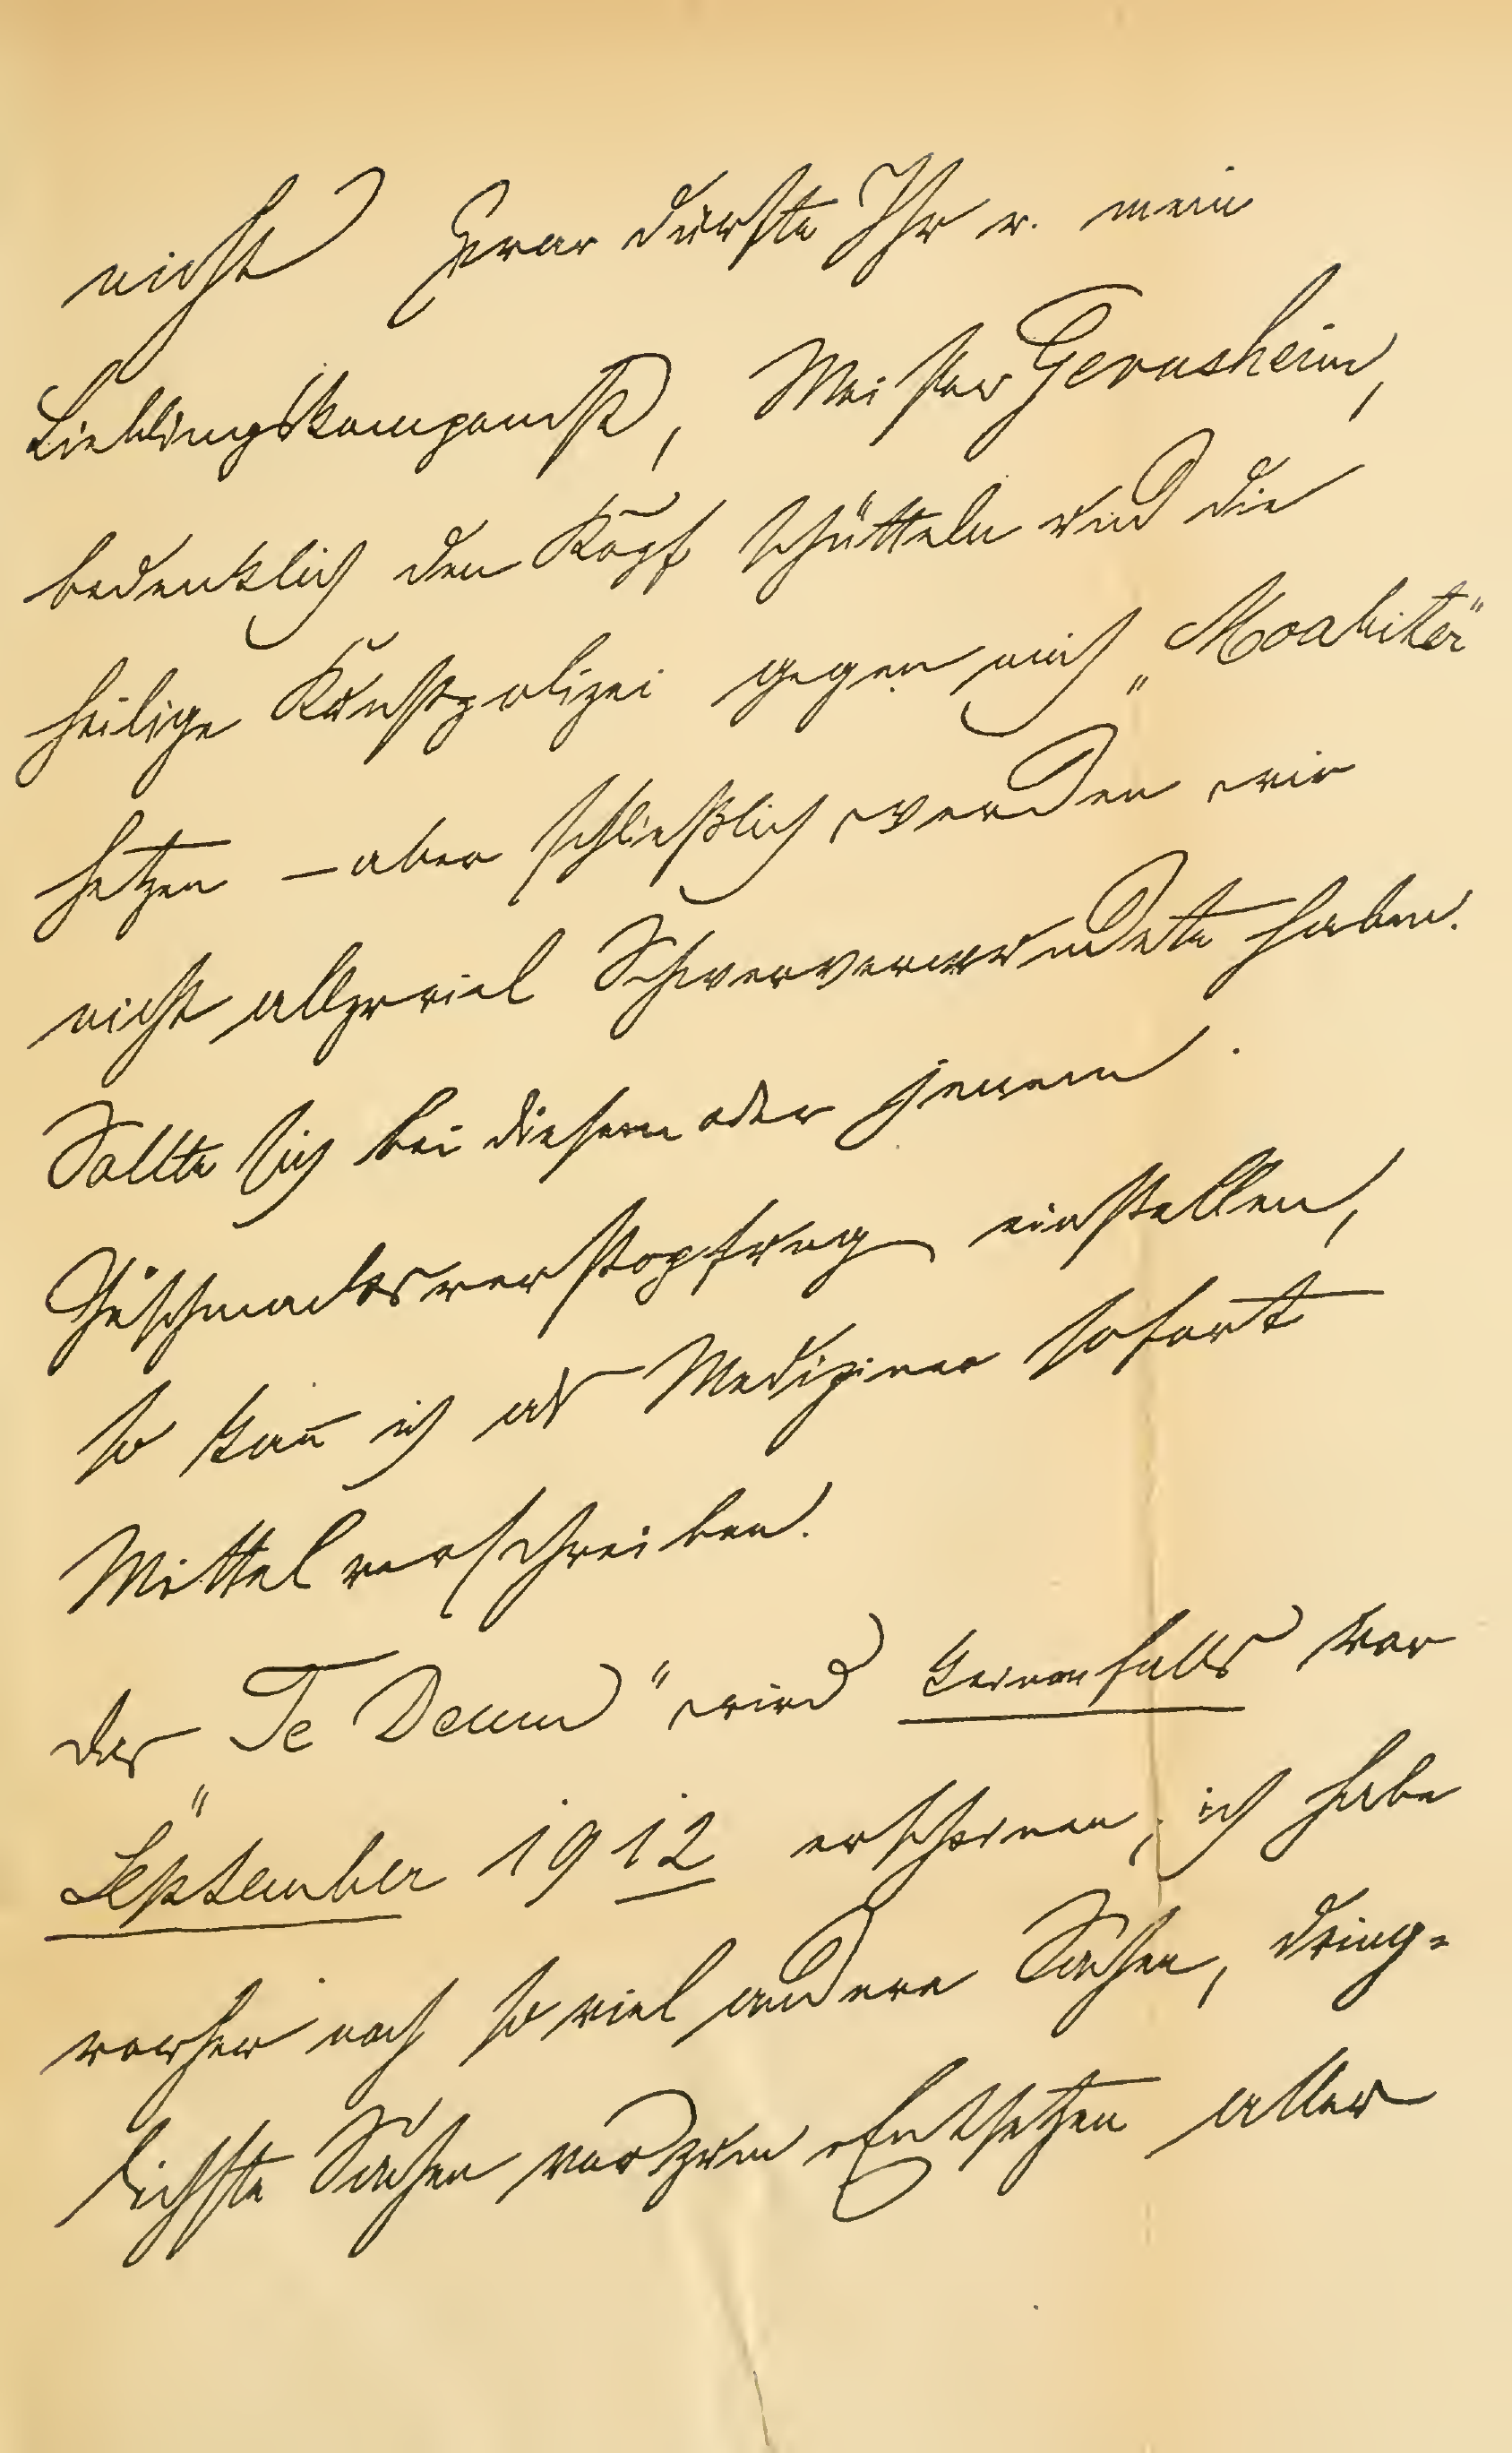 nicht Zwar dürfte Ihr u. mein
Lieblingskomponist, Meister Gernsheim,
bedenklich den Kopf schütteln und die
heilige Kunstpolizei gegen mich „Moabiter“
hetzen – aber schließlich werden wir
nicht allzuviel Schwerverwundete haben.
Sollte sich bei diesem oder jenem
Geschmacksverstopfung einstellen,
so kan̄ ich als Mediziner sofort
Mittel verschreiben.
das „Te Deum“ wird keinenfalls vor
September 1912 erscheinen, ich habe
vorher noch so viel andere Sachen, dring=
lichste Sachen vor zum Entsetzen aller